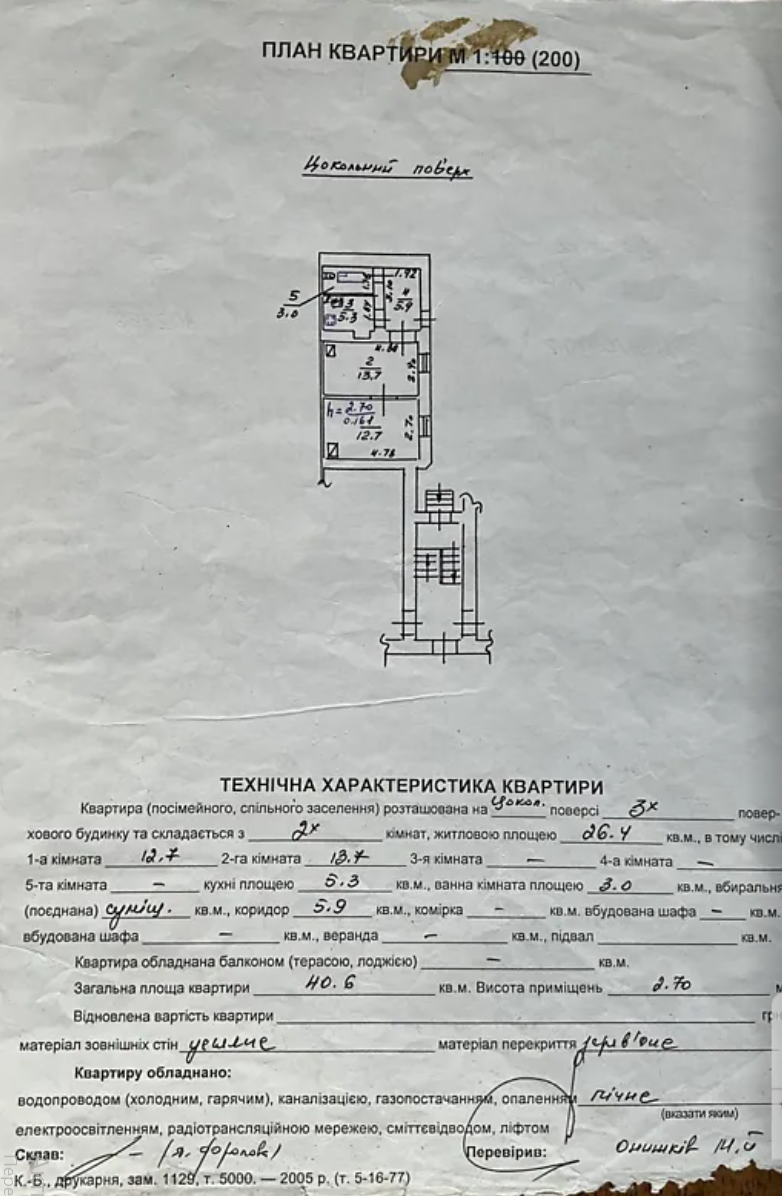 ПЛАН КВАРТИРИ М 1:100 (200)
Цокольний поверх
1.92
5
3.0
3
5.3
4
5.9
2
13.7
h=2.70
0.161
12.7
2.70
4.76
ТЕХНІЧНА ХАРАКТЕРИСТИКА КВАРТИРИ
Квартира (посімейного, спільного заселення) розташована на цокол. поверсі 3х повер-
хового будинку та складається з 2х кімнат, житловою площею 26.4 кв.м., в тому числі
1-а кімната 12.7 2-га кімната 13.7 3-я кімната — 4-а кімната —
5-та кімната — кухні площею 5.3 кв.м., ванна кімната площею 3.0 кв.м., вбиральня
(поєднана) суміщ. кв.м., коридор 5.9 кв.м., комірка — кв.м. вбудована шафа — кв.м.
вбудована шафа — кв.м., веранда — кв.м., підвал кв.м.
Квартира обладнана балконом (терасою, лоджією) — кв.м.
Загальна площа квартири 40.6 кв.м. Висота приміщень 2.70 м
Відновлена вартість квартири грн
матеріал зовнішніх стін матеріал перекриття
Квартиру обладнано:
водопроводом (холодним, гарячим), каналізацією, газопостачанням, опаленням пічне
(вказати яким)
електроосвітленням, радіотрансляційною мережею, сміттєвідводом, ліфтом
Склав: Перевірив: Онишків М.Й
К.-Б., друкарня, зам. 1129, т. 5000. — 2005 р. (т. 5-16-77)